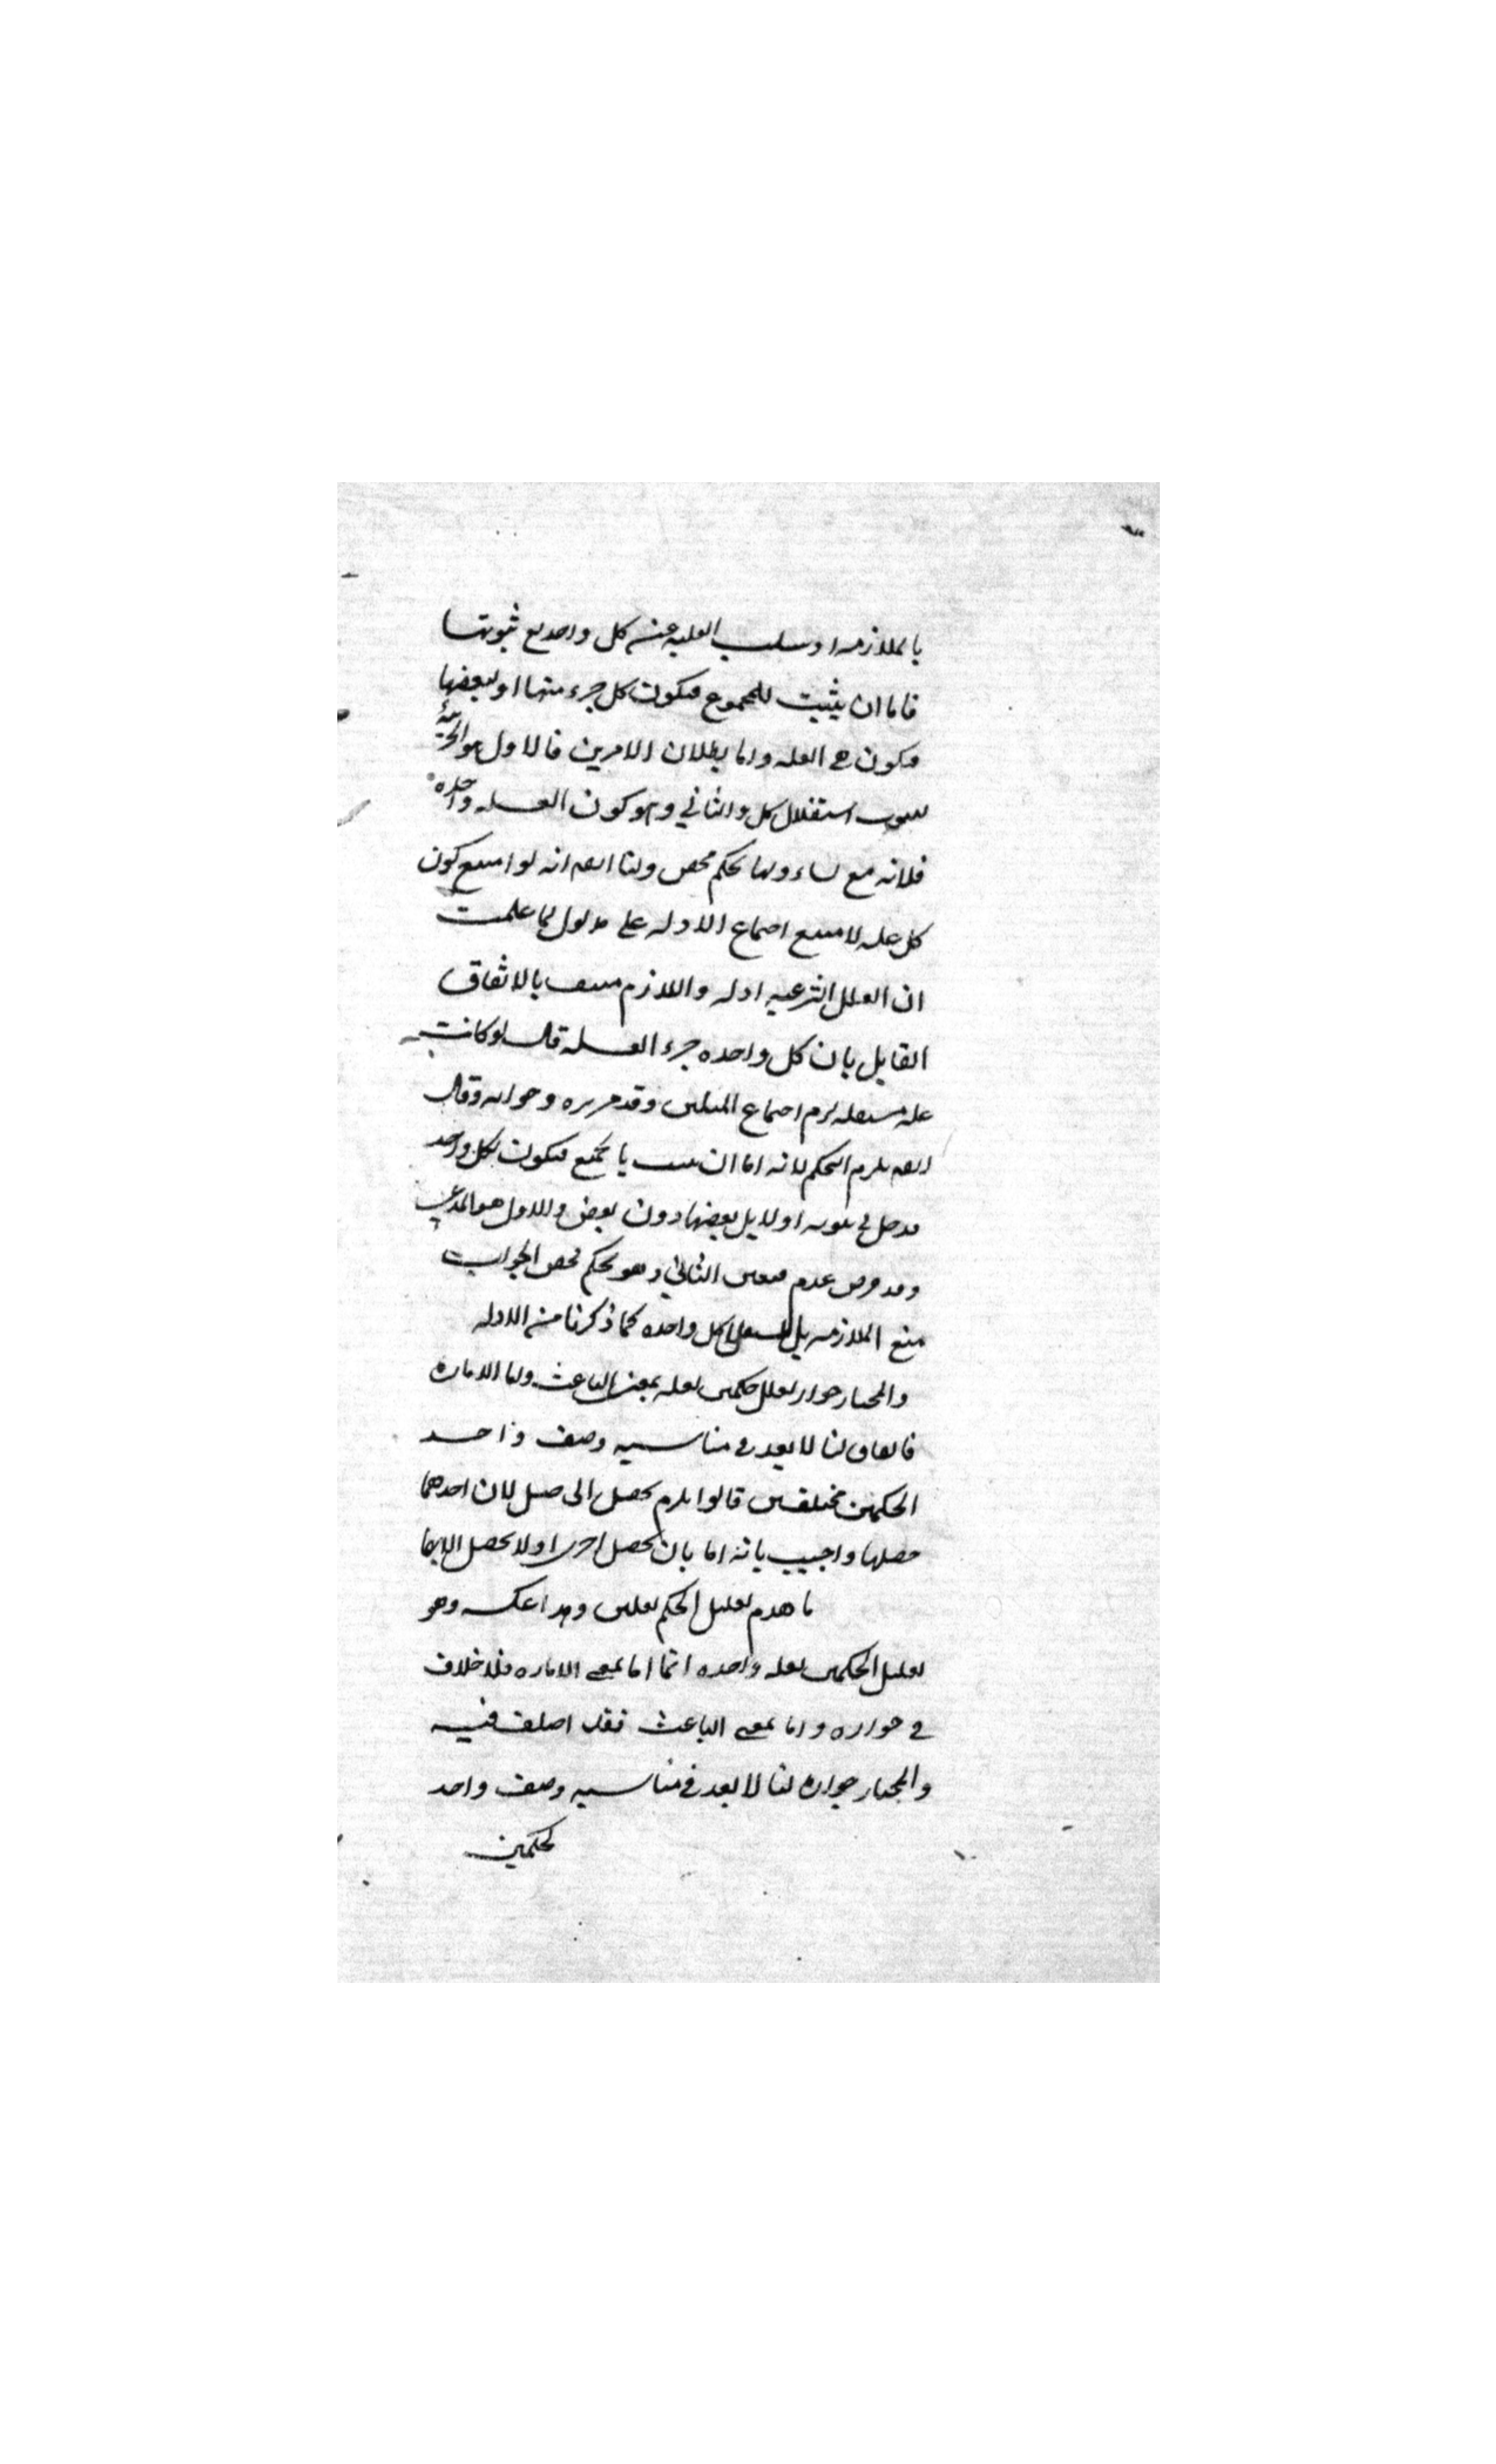 بالملازمه اوسلب العليه عن كل واحد مع ثبوتها
فاما ان يثبت للمجموع فيكون كل جزء منها او لبعضها
فيكون هي العله واما بطلان الامرين فالاول هو الجزئية
لثبوت استقلال كل والثاني وهو كون العله واحده
فلانه مع تساويها تحكم محض ولنا ايضا انه لو امتنع كون
كل عله لامتنع اجتماع الادله على مدلول لما علمت
ان العلل الشرعيه ادله واللازم منتف بالاتفاق
القايل بان كل واحده جزء العله قال لو كانت
عله مستقله لزم اجتماع المثلين وقد مر وجوابه وقال
ايضا يلزم التحكم لانه اما ان يثبت بالجميع فيكون لكل واحد
مدخل في ثبوته او لا بل بعضها دون بعض والاول هو المدعى
وقد فرض عدم فتعين الثاني وهو تحكم محض الجواب
منع الملازمه بل كل واحده كما ذكرنا من الادله
والمختار جواز تعليل حكمين بعله بمعنى الباعث واما الاماره
فاتفاق لنا لا بعد في مناسبه وصف واحد
الحكمين مختلفين قالوا يلزم تحصيل الحاصل لان احدهما
حصلها واجيب بانه اما بان يحصل اخرى او لا يحصل الا بهما
ما تقدم تعليل الحكم بعلتين وهذا عكسه وهو
تعليل الحكمين بعله واحده اما بمعنى الاماره فلا خلاف
في جوازه واما بمعنى الباعث فقد اختلف فيه
والمختار جوازه لنا لا بعد في مناسبه وصف واحد
لحكمين